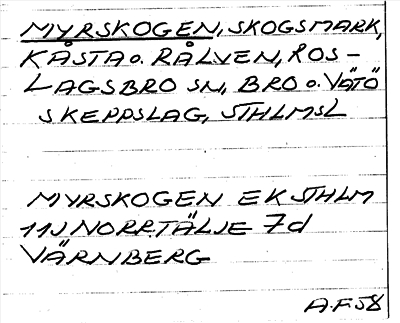 MYRSKOGEN, SKOGSMARK,
KÅSTA o. RÅLVEN, ROS-
LAGSBRO SN, BRO o. VÄTÖ
SKEPPSLAG, STHLMSL
MYRSKOGEN EK STHLM
11J NORRTÄLJE 7d
VÄRNBERG
A.F. 58